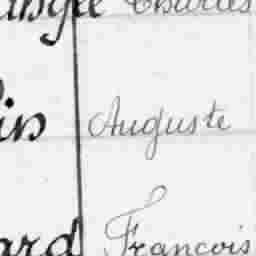 Charles
in Auguste
ard François